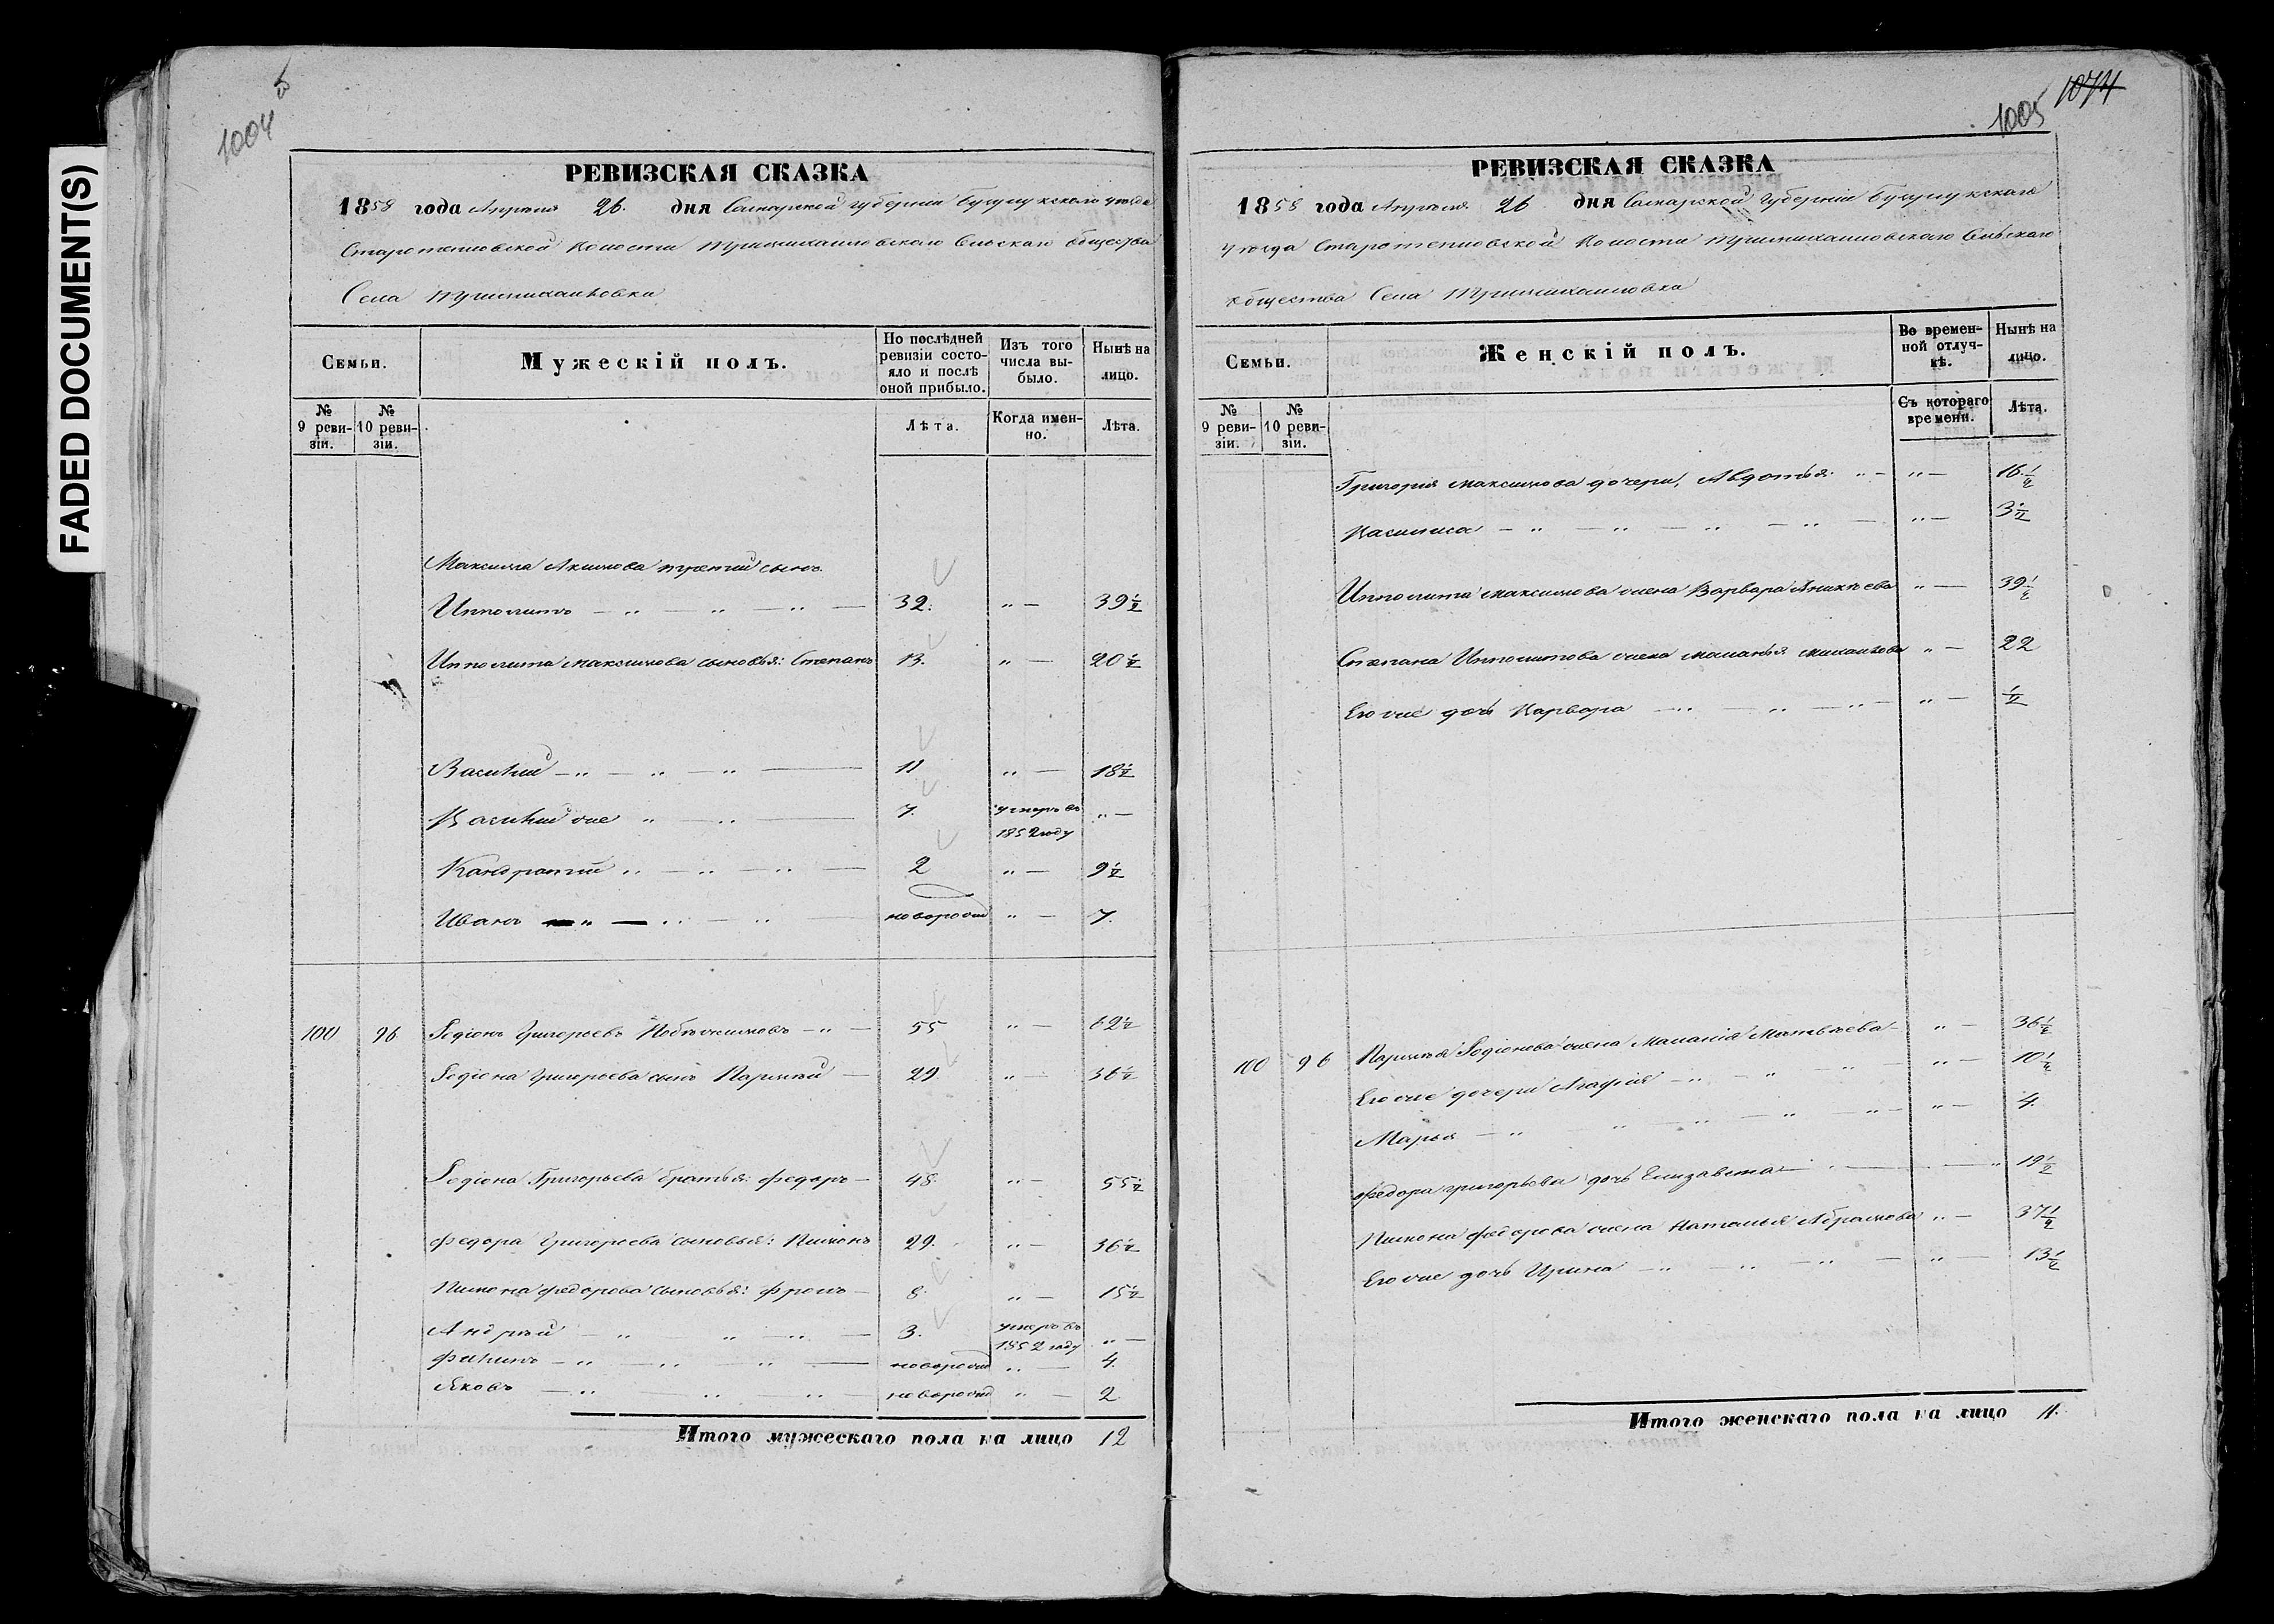 FADED DOCUMENT(S)
1004
об
РЕВИЗСКАЯ СКАЗКА
1858 года Апреля 26. дня Самарской губернии Бузулукскаго уезда
Волости Сельскаго общества
Села
Семьи.
Мужескій полъ.
По послѣдней ревизіи состояло и послѣ оной прибыло.
Изъ того числа выбыло.
Нынѣ на лицо.
№ 9 ревизіи.
№ 10 ревизіи.
Лѣта.
Когда именно.
Лѣта.
Максима Акимова третий сынъ
Ипполитъ — " " " — 32. " — 39 1/2
Ипполита Максимова сыновья: Степанъ 13. " — 20 1/2
Василий — " — " — " — 11 " — 18 1/2
Василий же " — " — 7. умеръ въ 1852 году " —
Кандратий " — " — " — 2 " — 9 1/2
Иванъ — " — " — " новорожд " — 7.
100 96 Родіонъ Григорьевъ — " — 55 " — 62 1/2
Родіона Григорьева сынъ Парфѣй — 29 " — 36 1/2
Родіона Григорьева братья: Федоръ — 48. " — 55 1/2
Федора Григорьева сыновья: Пименъ 29. " — 36 1/2
Пимена Федорова сыновья: Фролъ — 8. " — 15 1/2
Андрѣй — " " — " — 3. умеръ въ 1852 году " —
Филипъ — " — " " — новорожд " — 4.
Яковъ — " — " — " — новорожд " — 2.
Итого мужескаго пола на лицо 12
1074
1005
РЕВИЗСКАЯ СКАЗКА
1858 года Апреля 26 дня Самарской Губерніи Бузулукскаго
уезда Волости Сельскаго
общества Села
Семьи.
Женскій полъ.
Во временной отлучкѣ.
Нынѣ на лицо.
№ 9 ревизіи.
№ 10 ревизіи.
Съ котораго времени.
Лѣта.
Григорія Максимова дочери, Авдотья " — " — 16 1/2
Василиса — " — " — " — " — " — 3 1/2
Ипполита Максимова жена Варвара " — 39 1/2
Степана Ипполитова жена Маланья Михайлова " — 22
Его же дочь Варвара — " — " — " — " — 1/2
100 96 Парфѣя Родіонова жена Маланія Матвѣева — " — 36 1/2
Его же дочери Агафія — " — " " — " — 10 1/2
Марья — " " — " — " " — " — 4.
Федора Григорьева дочь Елизавета — " 19 1/2
Пимена Федорова жена Наталья Абрамова " — 37 1/2
Его же дочь Ирина — " — " — " — " — 13 1/2
Итого женскаго пола на лицо 11.